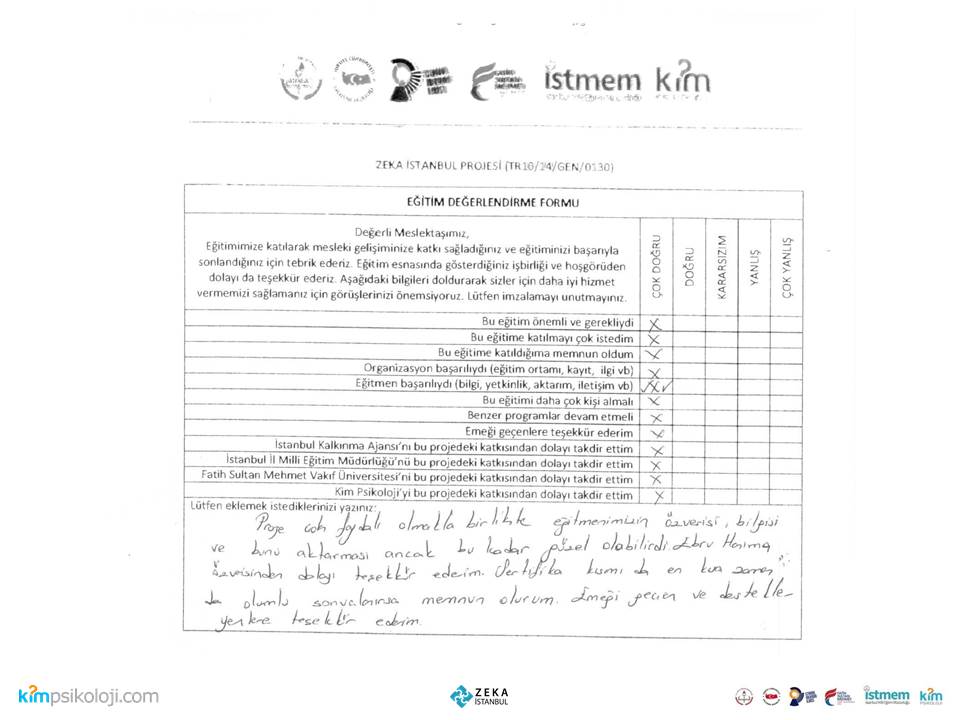 istmem kim
ZEKA İSTANBUL PROJESİ (TR10/14/GEN/0130)
EĞİTİM DEĞERLENDİRME FORMU
Değerli Meslektaşımız,
Eğitimimize katılarak mesleki gelişiminize katkı sağladığınız ve eğitiminizi başarıyla
sonlandığınız için tebrik ederiz. Eğitim esnasında gösterdiğiniz işbirliği ve hoşgörüden
dolayı da teşekkür ederiz. Aşağıdaki bilgileri doldurarak sizler için daha iyi hizmet
vermemizi sağlamanız için görüşlerinizi önemsiyoruz. Lütfen imzalamayı unutmayınız.
ÇOK DOĞRU
DOĞRU
KARARSIZIM
YANLIŞ
ÇOK YANLIŞ
Bu eğitim önemli ve gerekliydi
Bu eğitime katılmayı çok istedim
Bu eğitime katıldığıma memnun oldum
Organizasyon başarılıydı (eğitim ortamı, kayıt, ilgi vb)
Eğitmen başarılıydı (bilgi, yetkinlik, aktarım, iletişim vb)
Bu eğitimi daha çok kişi almalı
Benzer programlar devam etmeli
Emeği geçenlere teşekkür ederim
İstanbul Kalkınma Ajansı'nı bu projedeki katkısından dolayı takdir ettim
İstanbul İl Milli Eğitim Müdürlüğü'nü bu projedeki katkısından dolayı takdir ettim
Fatih Sultan Mehmet Vakıf Üniversitesi'ni bu projedeki katkısından dolayı takdir ettim
Kim Psikoloji'yi bu projedeki katkısından dolayı takdir ettim
Lütfen eklemek istediklerinizi yazınız:
Proje çok faydalı olmakla birlikte eğitmenimizin özverisi, bilgisi
ve bunu aktarması ancak bu kadar güzel olabilirdi. Ebru Hanıma
özverisinden dolayı teşekkür ederim. Sertifika kısmı da en kısa zaman
da olumlu sonuçlanırsa memnun olurum. Emeği geçen ve destekle-
yenlere teşekkür ederim.
kimpsikoloji.com
ZEKA
İSTANBUL
istmem
kim
PSİKOLOJİ